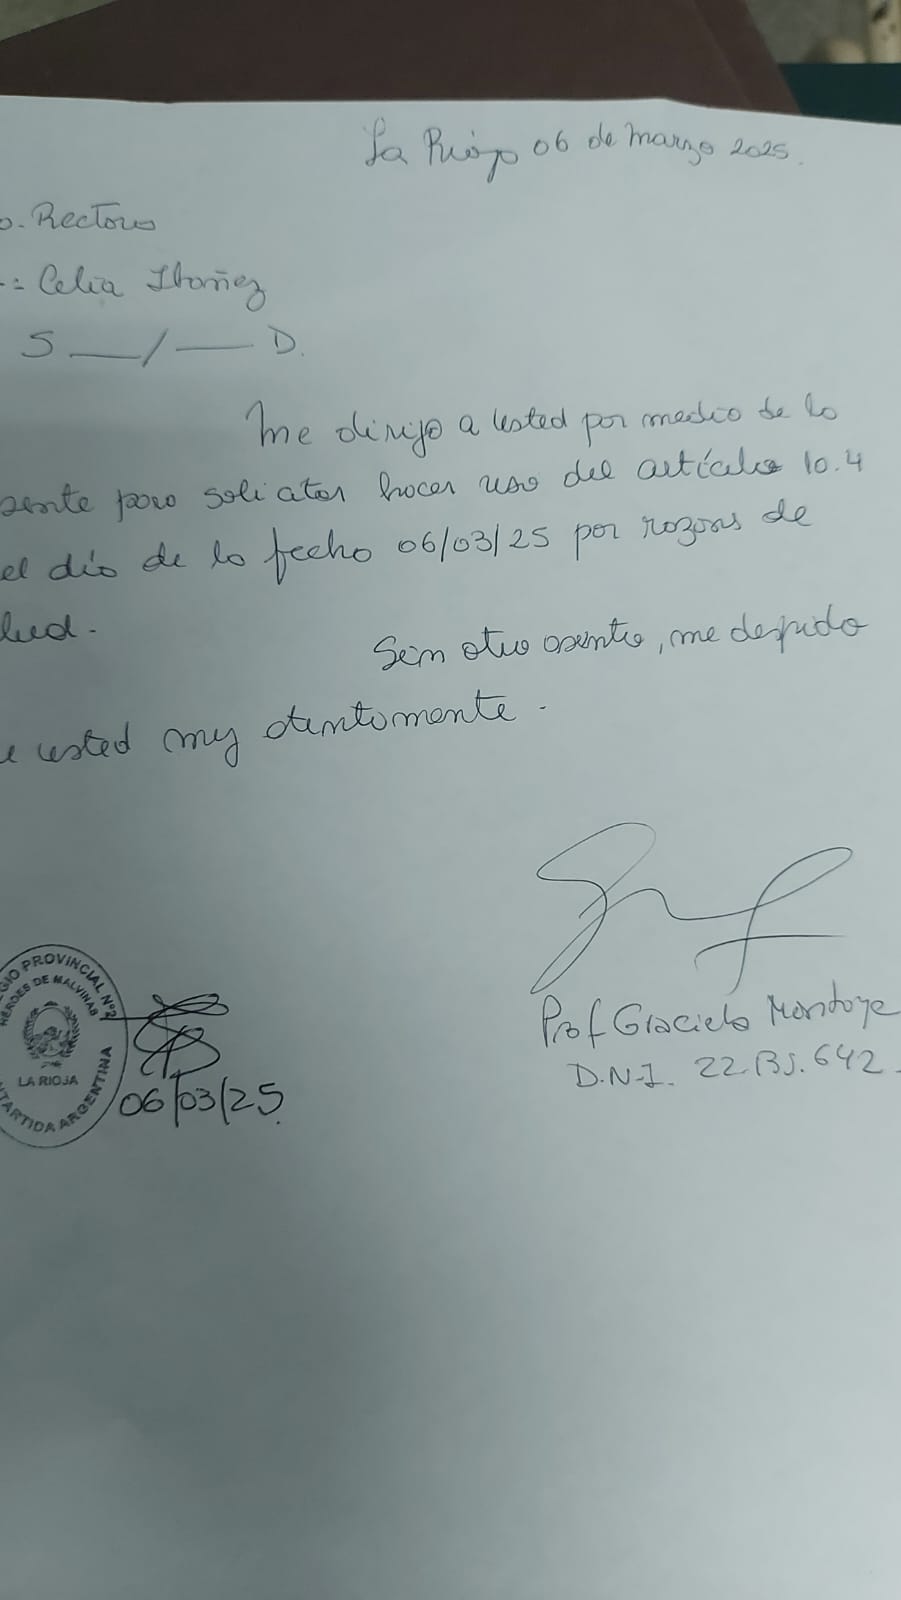 La Rioja 06 de Marzo 2025.
o. Rectora
-: Celia Ibañez
S ___/___ D.
Me dirijo a usted por medio de la
sente para solicitar hacer uso del artículo 10.4
el día de la fecha 06/03/25 por razones de
lud.
Sin otro asunto, me despido
e usted muy atentamente.
Prof Graciela Montoya
D.N.I. 22.135.642.
GIO PROVINCIAL Nº2
HEROES DE MALVINAS
LA RIOJA
NTARTIDA ARGENTINA
06/03/25